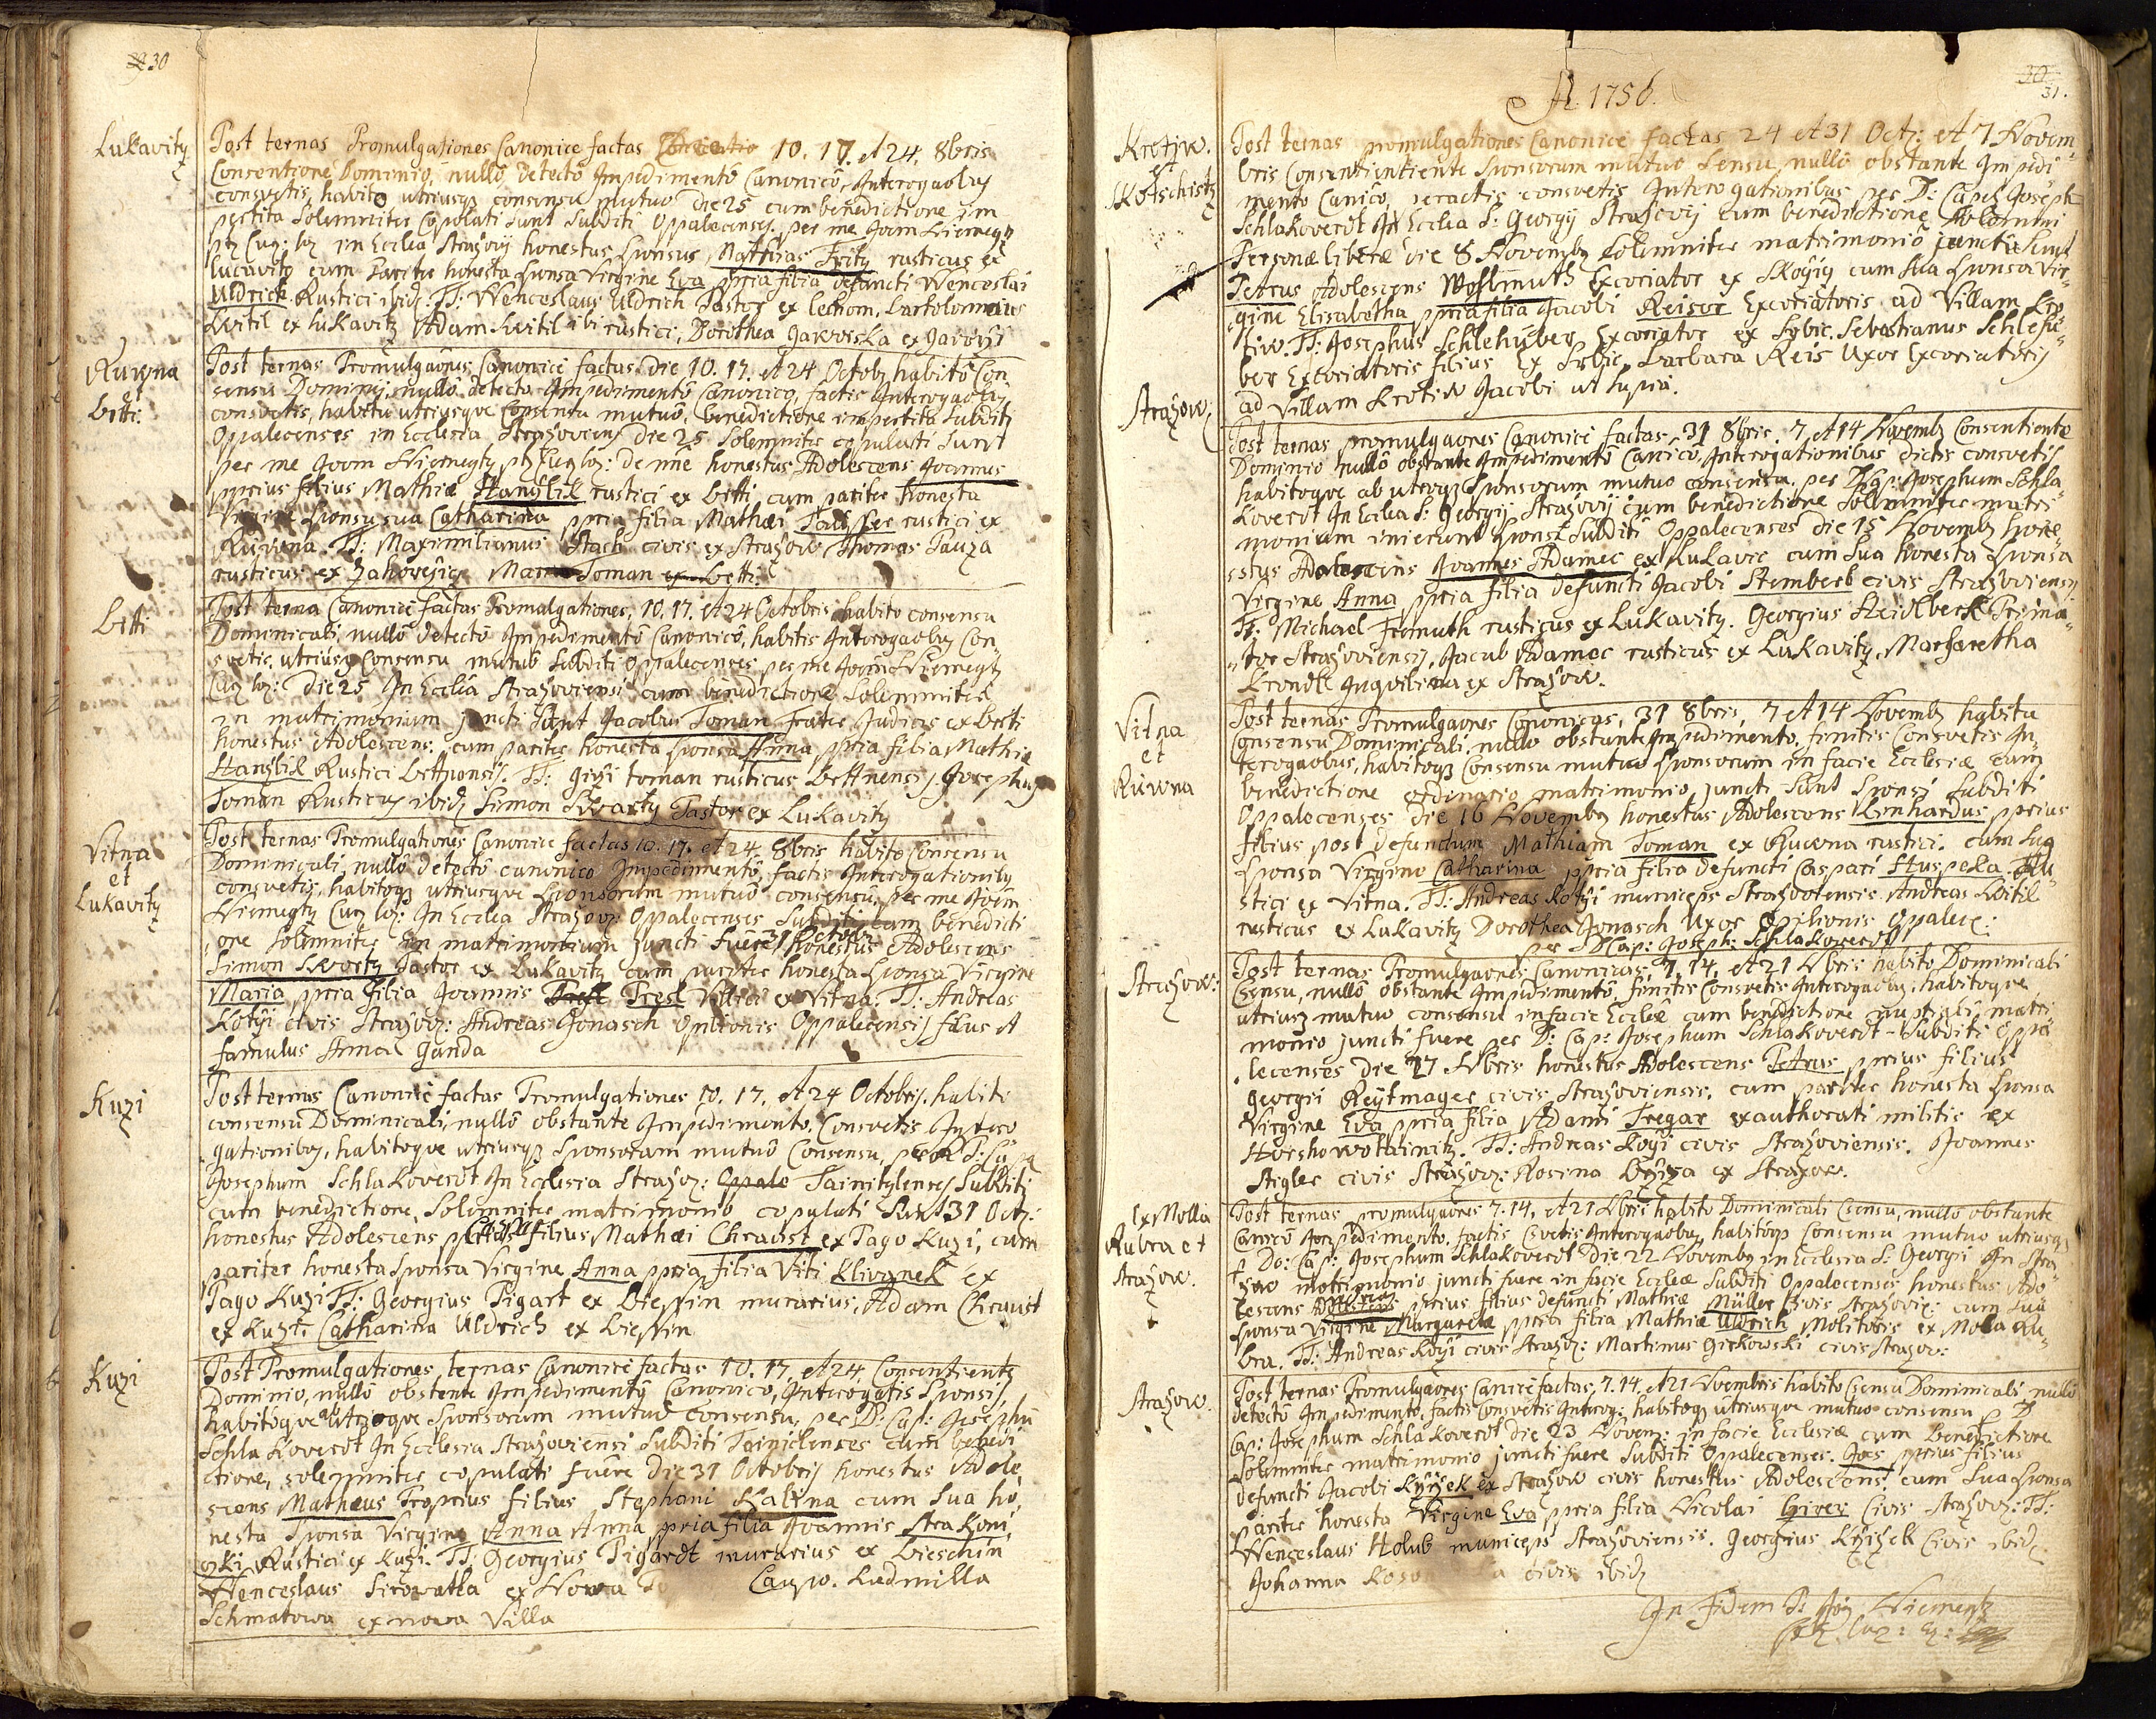 30
Lukavitz
Post ternas Promulgationes Canonice factas 10. 17. et 24. 8bris
Consentione Dominio, nullo detecto Impedimento Canonico, Interogaobus
consvetis, habito utriusq consensu mutuo die 25 cum benedictione im
pertita Solemniter Copulati sunt Subditi Oppalecenses. per me Joan Niemegtz
in Ecclia Strazovij honestus Sponsus Mathias Frity rusticus ex
Lucavitz cum Pariter honesta sponsa Virgine Eva ppria filia defuncti Wenceslai
Uldrich Rustici ibid: TT: Wenceslaus Uldrich Pastor ex Lechom. Bartolomaeus
Witil ex Lukavitz Adam Witil ibi rustici, Dorothea Jakowska ex
Ruwna
et
Letti:
Post ternas Promulgaones Canonice factas Die 10. 17. et 24 Octob habito Con
sensu Dominij, nullo detecto Impedimento Canonico, factis Interogaobus
consvetis, habito utriusque Consensu mutuo, benedictione impertita Subditi
Oppalecenses in Ecclesia Strazoviens Die 25 Solemniter copulati sunt
per me Joan Niemegtz honestus Adolescens Joannes
pprius filius Mathiae Hanzlik rustici ex Letti, cum pariter honesta
Virgine Sponsa sua Catharina ppria filia Mathaei rustici ex
Ruwna. TT: Maximilianus Stach civis ex Strazow Thomas Pauza
rusticus ex Zahorczicz Toman ex Letti.
Letti
Post terna Canonice factas Promulgationes, 10. 17. et 24 Octobris habito consensu
Dominicali, nullo detecto Impedimento Canonico, habitis Interogaobus Con
svetis, utriusq Consensu mutuo Subditi Oppalecenses per me Joan Niemegtz
Die 25 In Ecclia Strazoviensi cum benedictione Solemniter
in matrimonium juncti Sunt Jacobus Toman frater Judicis ex Letti
honestus Adolescens: cum pariter honesta sponsa Anna ppria filia Mathiae
Hanzlik Rustici TT: Girzi toman rusticus Josephus
Toman Rusticus ibid Simon Skwartz Pastor ex Lukavitz
Vitna
et
Lukavitz
Post ternas Promulgationes Canonice factas 10. 17. et 24 8bris habito Consensu
Dominicali, nullo detecto canonico Impedimento, factis Interogationibus
consvetis, habitoq utriusque Sponsorum mutuo consensu, per me Joan
Niemegtz In Ecclia Strazov: Oppalecenses Subditi cum benedicti
one Solemniter in matrimonium juncti fuere 31 honestus Adolescens
Simon Skwortz Pastor ex Lukavitz cum pariter honesta Sponsa Virgine
Maria ppria filia Joannis Presl Villici ex Vitna. TT: Andreas
Kotzi civis Strazov: Andreas Jonasch Opilionis Oppalecensis filius et
famulus Ganda
Kuzi
Post ternas Canonice factas Promulgationes 10. 17. et 24 Octobris, habito
consensu Dominicali, nullo obstante Impedimento, Consvetis Intero
gationibus, habitoque utriusq Sponsorum mutuo Consensu, per
Josephum Schlakoverdt In Ecclesia Strazov: Subditi
cum benedictione, Solemniter matrimonio copulati Sunt 31 Oct:
honestus Adolescens filius Mathaei Chraust ex Pago Kuzi, cum
pariter honesta Sponsa Virgine Anna ppria filia Viti Klivynek ex
Pago Kuzi TT: Georgius Pigart ex murarius, Adam Chraust
ex Kuzi. Catharina Uldrich ex
Kuzi
Post Promulgationes, ternas Canonice factas 10. 17. et 24 Consentiente
Dominio, nullo obstante Impedimento Canonico, Interogatis Sponsis,
habitoque ab utroque Sponsorum mutuo Consensu, per D: Cap: Josephu
Schlakoverdt In Ecclesia Strazoviensi Subditi cum benedi
ctione, solemniter copulati fuere Die 31 Octobris honestus Adole
scens Matheus Proprius filius Stephani Kalina cum Sua ho,
nesta Sponsa Virgine Anna Anna ppria filia Joannis Strakoni,
czki Rustici ex Kuzi. TT: Georgius Pigardt murarius ex Lieschin
Wenceslaus Sirowatka ex Nowa Ludmilla
Schmatowa ex nowa Villa
31.
A. 1756.
Krotiw.
et
Kotschistz
Post ternas promulgationes Canonice factas 24 et 31 Oct: et 7 Novem-
bris Consentientiente Sponsorum mutuo Sensu, nullo obstante Impedi
mento Canico, peractis consvetis Interogationibus per D: Cap: Joseph
Schlakoverdt In Ecclia S: Georgij Strazovij cum benedictione Solemni
Personae liberae die 8 Novemb solemniter matrimonio juncti sunt
Petrus Adolescens Wohlmuth Excoriator ex cum Sua sponsa Vir-
gine Elisabetha ppria filia Jacobi Reiser Excoriatoris ad Villam Kro
tiw. TT: Josephus Schlehuber Excoriator ex Srbic. Sebastianus Schlehu-
ber Excoriatoris filius Ex Srbic, Barbara Reis Uxor Excoriatoris
ad Villam Krotiw Jacobi ut supra.
Strazow
Post ternas promulgaones Canonice factas, 31 8bris. 7 et 14 Novemb Consentiente
Dominio nullo obstante Impedimento Canico, Interogationibus dictis consvetis
habitoque ab utroq Sponsorum mutuo consensu, per D. Cap: Josephum Schla-
koverdt In Ecclia S: Georgij Strazovij cum benedictione Solemniter matri-
monium inierunt Sponsi Subditi Oppalecenses die 15 Novemb hone-
stus Adolescens Joannes Adamec ex Lukavic cum Sua honesta Sponsa
Virgine Anna ppria filia defuncti Jacobi Stemberk civis Strazoviensis
TT: Michael Fromuth rusticus ex Lukavitz. Georgius Heidlberk Prima-
tor Strazoviensis, Jacub Adamec rusticus ex Lukavitz, Marharetha
Krondl Inquilina ex Strazow.
Vitna
et
Ruwna
Post ternas Promulgaones Canonicas, 31 8bris, 7 et 14 Novemb habitu
Consensu Dominicali, nullo obstante Impedimento, finitis Consvetis In-
terogaobus, habitoq Consensu mutuo Sponsorum in facie Ecclesiae cum
benedictione ordinario matrimonio juncti sunt Sponsi Subditi
Oppalecenses die 16 Novemb honestus Adolescens Linhardus pprius
filius post defunctum Mathiam Toman ex Ruwna rustici. cum sua
Sponsa Virgine Catharina ppria filia defuncti Caspari Huspeka Ru-
stici ex Vitna. TT: Andreas Kotzi municeps Andreas Witil
rusticus ex Lukavitz Dorothea Jonasch Uxor Opilionis Oppalec:
per D Cap: Joseph: Schlakoverdt
Strazow:
Post ternas Promulgaones Canonicas, 7. 14. et 21 Nbris habito Dominicali
Csensu, nullo obstante Impedimento finitis Consvetis Interogaobus, habitoque
utriusq mutuo consensu in facie Eccliae cum benedictione nuptiali matri
monio juncti fuere per D: Cap: Josephum Schlakoverdt - Subditi Oppa
lecenses Die 27 Nbris honestus Adolescens Petrus pprius filius
Georgii Reytmayer civis Strazoviensis. cum pariter honesta Sponsa
Virgine Eva ppria filia Adami Tregar exauthorati militis ex
Horshowotainitz. TT: Andreas Kozi civis Strazoviensis. Joannes
Stigler civis Strazov: Rosina ex Strazow.
Ex Molla
Rubra et
Strazow.
Post ternas promulgaones 7. 14. et 21 Nbris habito Dominicali Csensu, nullo obstante
Canico Impedimento, factis Csvetis Interogaobus, habitoq Consensu mutuo utriusq
Do: Cap: Josephum Schlakoverdt Die 22 Novemb in Ecclesia S: Georgi In Stra-
zow matrimonio juncti fuere in facie Eccleae Subditi Oppalecenses honestus Ado-
lescens pprius filius defuncti Mathiae Müller Civis Strazovie: cum Sua
Sponsa Virgine Margareta ppria filia Mathiae Uldrich Molitoris ex Mola Ru-
bra. TT: Andreas Kozi civis Strazov: Martinus Girkowski civis Strazov:
Strazow.
Post ternas Promulgaones Canice factas, 7. 14. et 21 Novembris habito Csensu Dominicali, nullo
detecto Impedimento, factis Consvetis Interog: habitoq utriusque mutuo consensu p D
Cap: Josephum Schlakoverdt die 23 Novem: in facie Ecclesiae cum Benedictione
Solemniter matrimonio juncti fuere Subditi Oppalecenses. Joes pprius filius
defuncti Jacobi Krzizek ex Strazow civis honestus Adolescens, cum Sua Sponsa
pariter honesta Virgine Eva ppria filia Nicolai Civis Strazov: TT:
Wenceslaus Holub municeps Strazoviensis. Georgius Krzizek Civis ibid.
Johanna civis ibid
In Fidem P. Joan Niemegtz